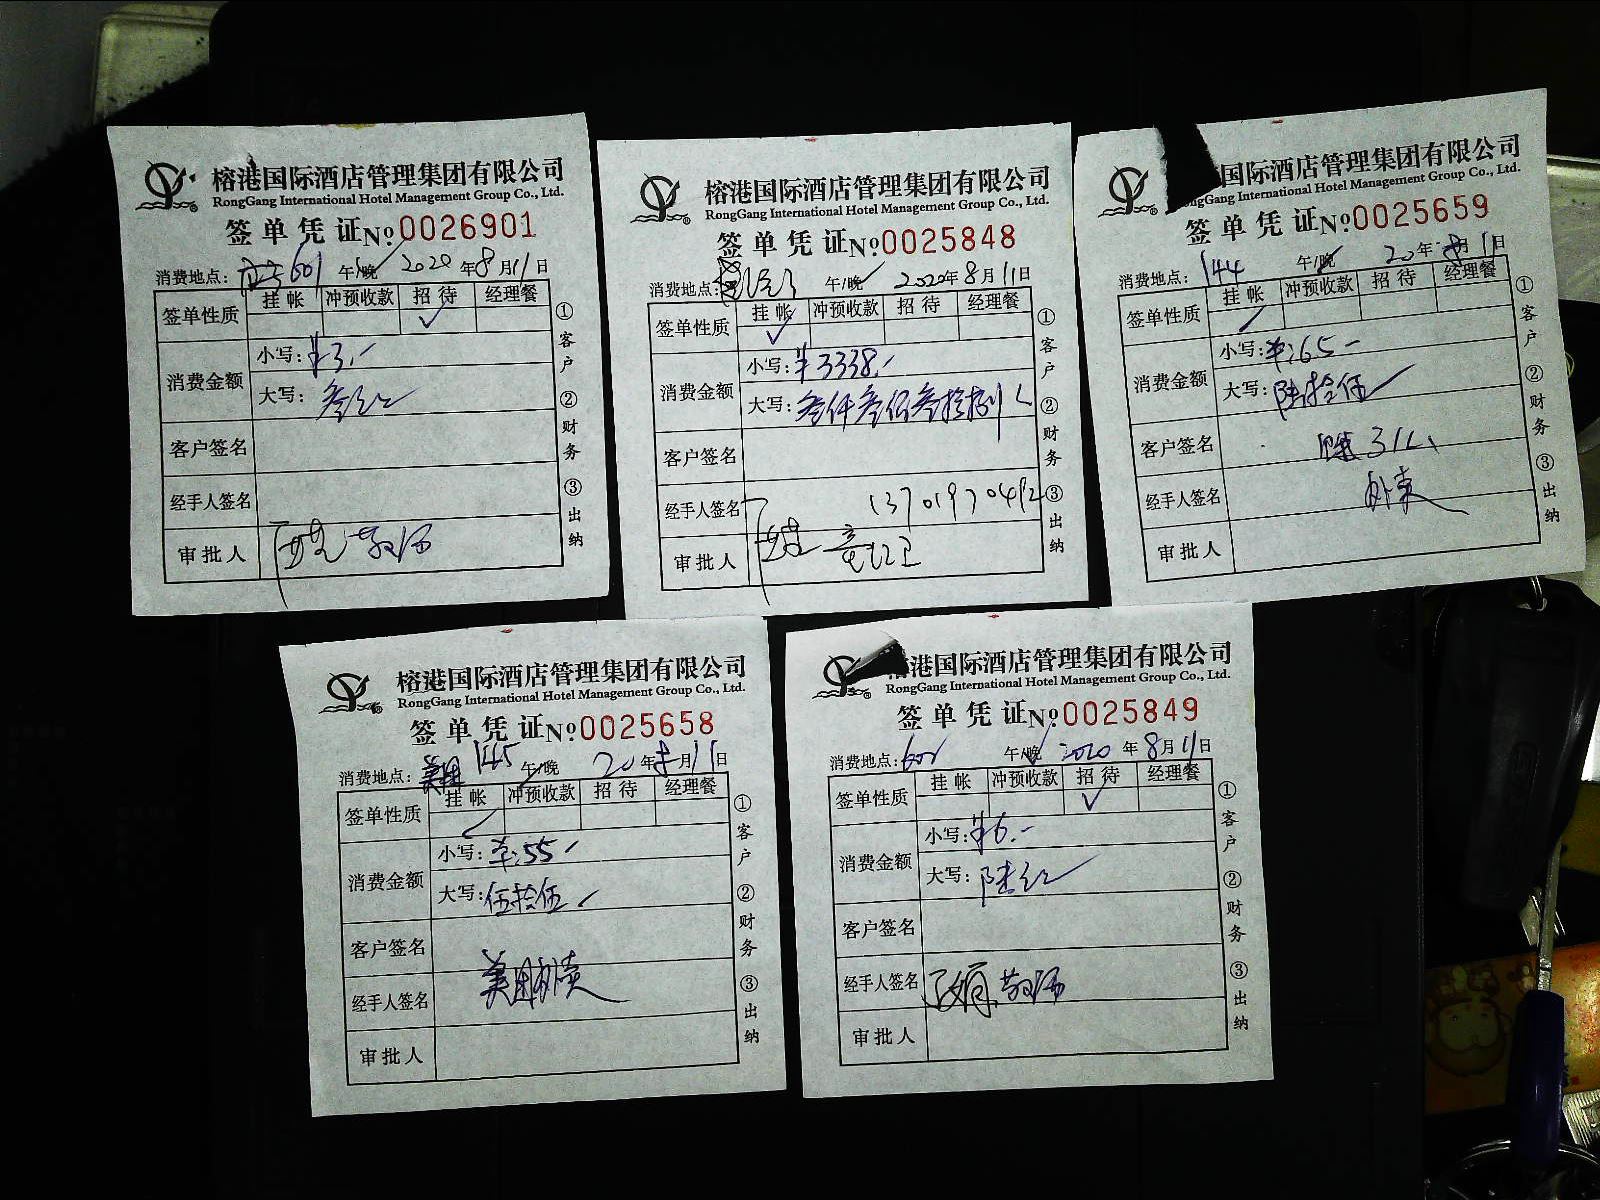 榕港国际酒店管理集团有限公司
RongGang International Hotel Management Group Co., Ltd.
签单凭证 №0026901
消费地点: 601 午/晚 2020年8月11日
签单性质 挂帐 冲预收款 招待 经理餐
✓
消费金额 小写: ¥3.-
大写: 叁元
客户签名
经手人签名
审批人
①客户 ②财务 ③出纳
榕港国际酒店管理集团有限公司
RongGang International Hotel Management Group Co., Ltd.
签单凭证 №0025848
消费地点: 午/晚 2020年8月11日
签单性质 挂帐 冲预收款 招待 经理餐
✓
消费金额 小写: ¥3338.-
大写: 叁仟叁佰叁拾捌
客户签名
经手人签名 13701970492
审批人
①客户 ②财务 ③出纳
国际酒店管理集团有限公司
ngGang International Hotel Management Group Co., Ltd.
签单凭证 №0025659
消费地点: 144 午/晚 20年8月11日
签单性质 挂帐 冲预收款 招待 经理餐
✓
消费金额 小写: ¥:65-
大写: 陆拾伍
客户签名
经手人签名 外卖
审批人
①客户 ②财务 ③出纳
榕港国际酒店管理集团有限公司
RongGang International Hotel Management Group Co., Ltd.
签单凭证 №0025658
消费地点: 美团 145 午/晚 20年8月11日
签单性质 挂帐 冲预收款 招待 经理餐
✓
消费金额 小写: ¥:55.-
大写: 伍拾伍
客户签名
经手人签名 美团外卖
审批人
①客户 ②财务 ③出纳
榕港国际酒店管理集团有限公司
RongGang International Hotel Management Group Co., Ltd.
签单凭证 №0025849
消费地点: 602 午/晚 2020年8月11日
签单性质 挂帐 冲预收款 招待 经理餐
✓
消费金额 小写: ¥6.-
大写: 陆元
客户签名
经手人签名
审批人
①客户 ②财务 ③出纳